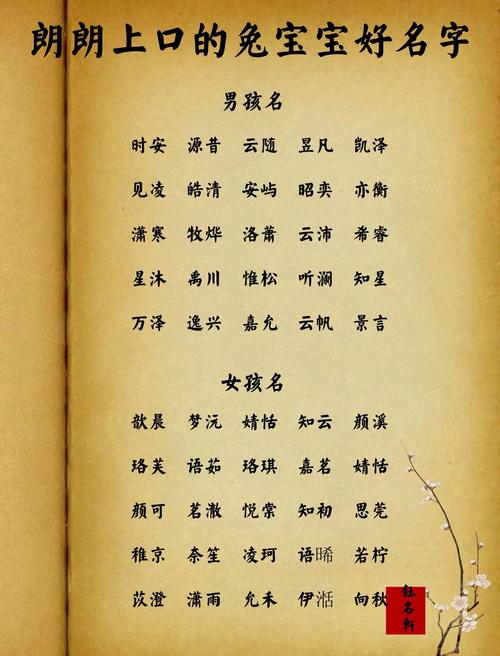 朗朗上口的兔宝宝好名字
男孩名
时安 源昔 云随 昱凡 凯泽
见凌 皓清 安屿 昭奕 亦衡
潇寒 牧烨 洛萧 云沛 希睿
星沐 禹川 惟松 听澜 知星
万泽 逸兴 嘉允 云帆 景言
女孩名
歆晨 梦沅 婧恬 知云 颜溪
珞芙 语茹 珞琪 嘉茗 婧恬
颜可 茗澈 悦棠 知初 思莞
稚京 奈笙 凌珂 语晞 若柠
苡澄 潇雨 允禾 伊湉 向秋
钰名轩